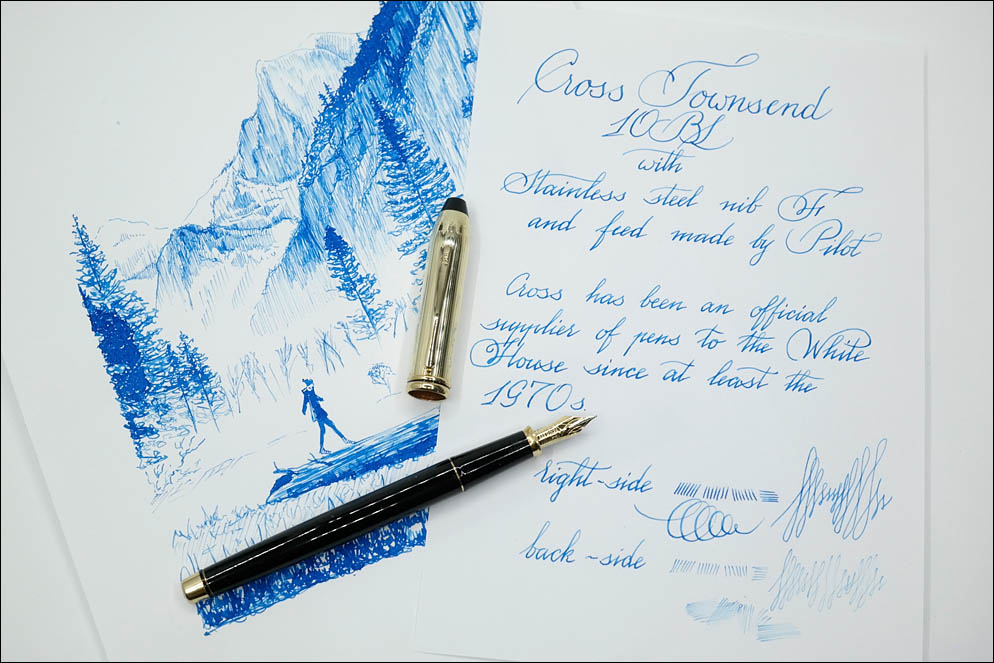 Cross Townsend
10BL
with
Stainless steel nib Fr
and feed made by Pilot
Cross has been an official
supplier of pens to the White
House since at least the
1970s.
right-side
back-side